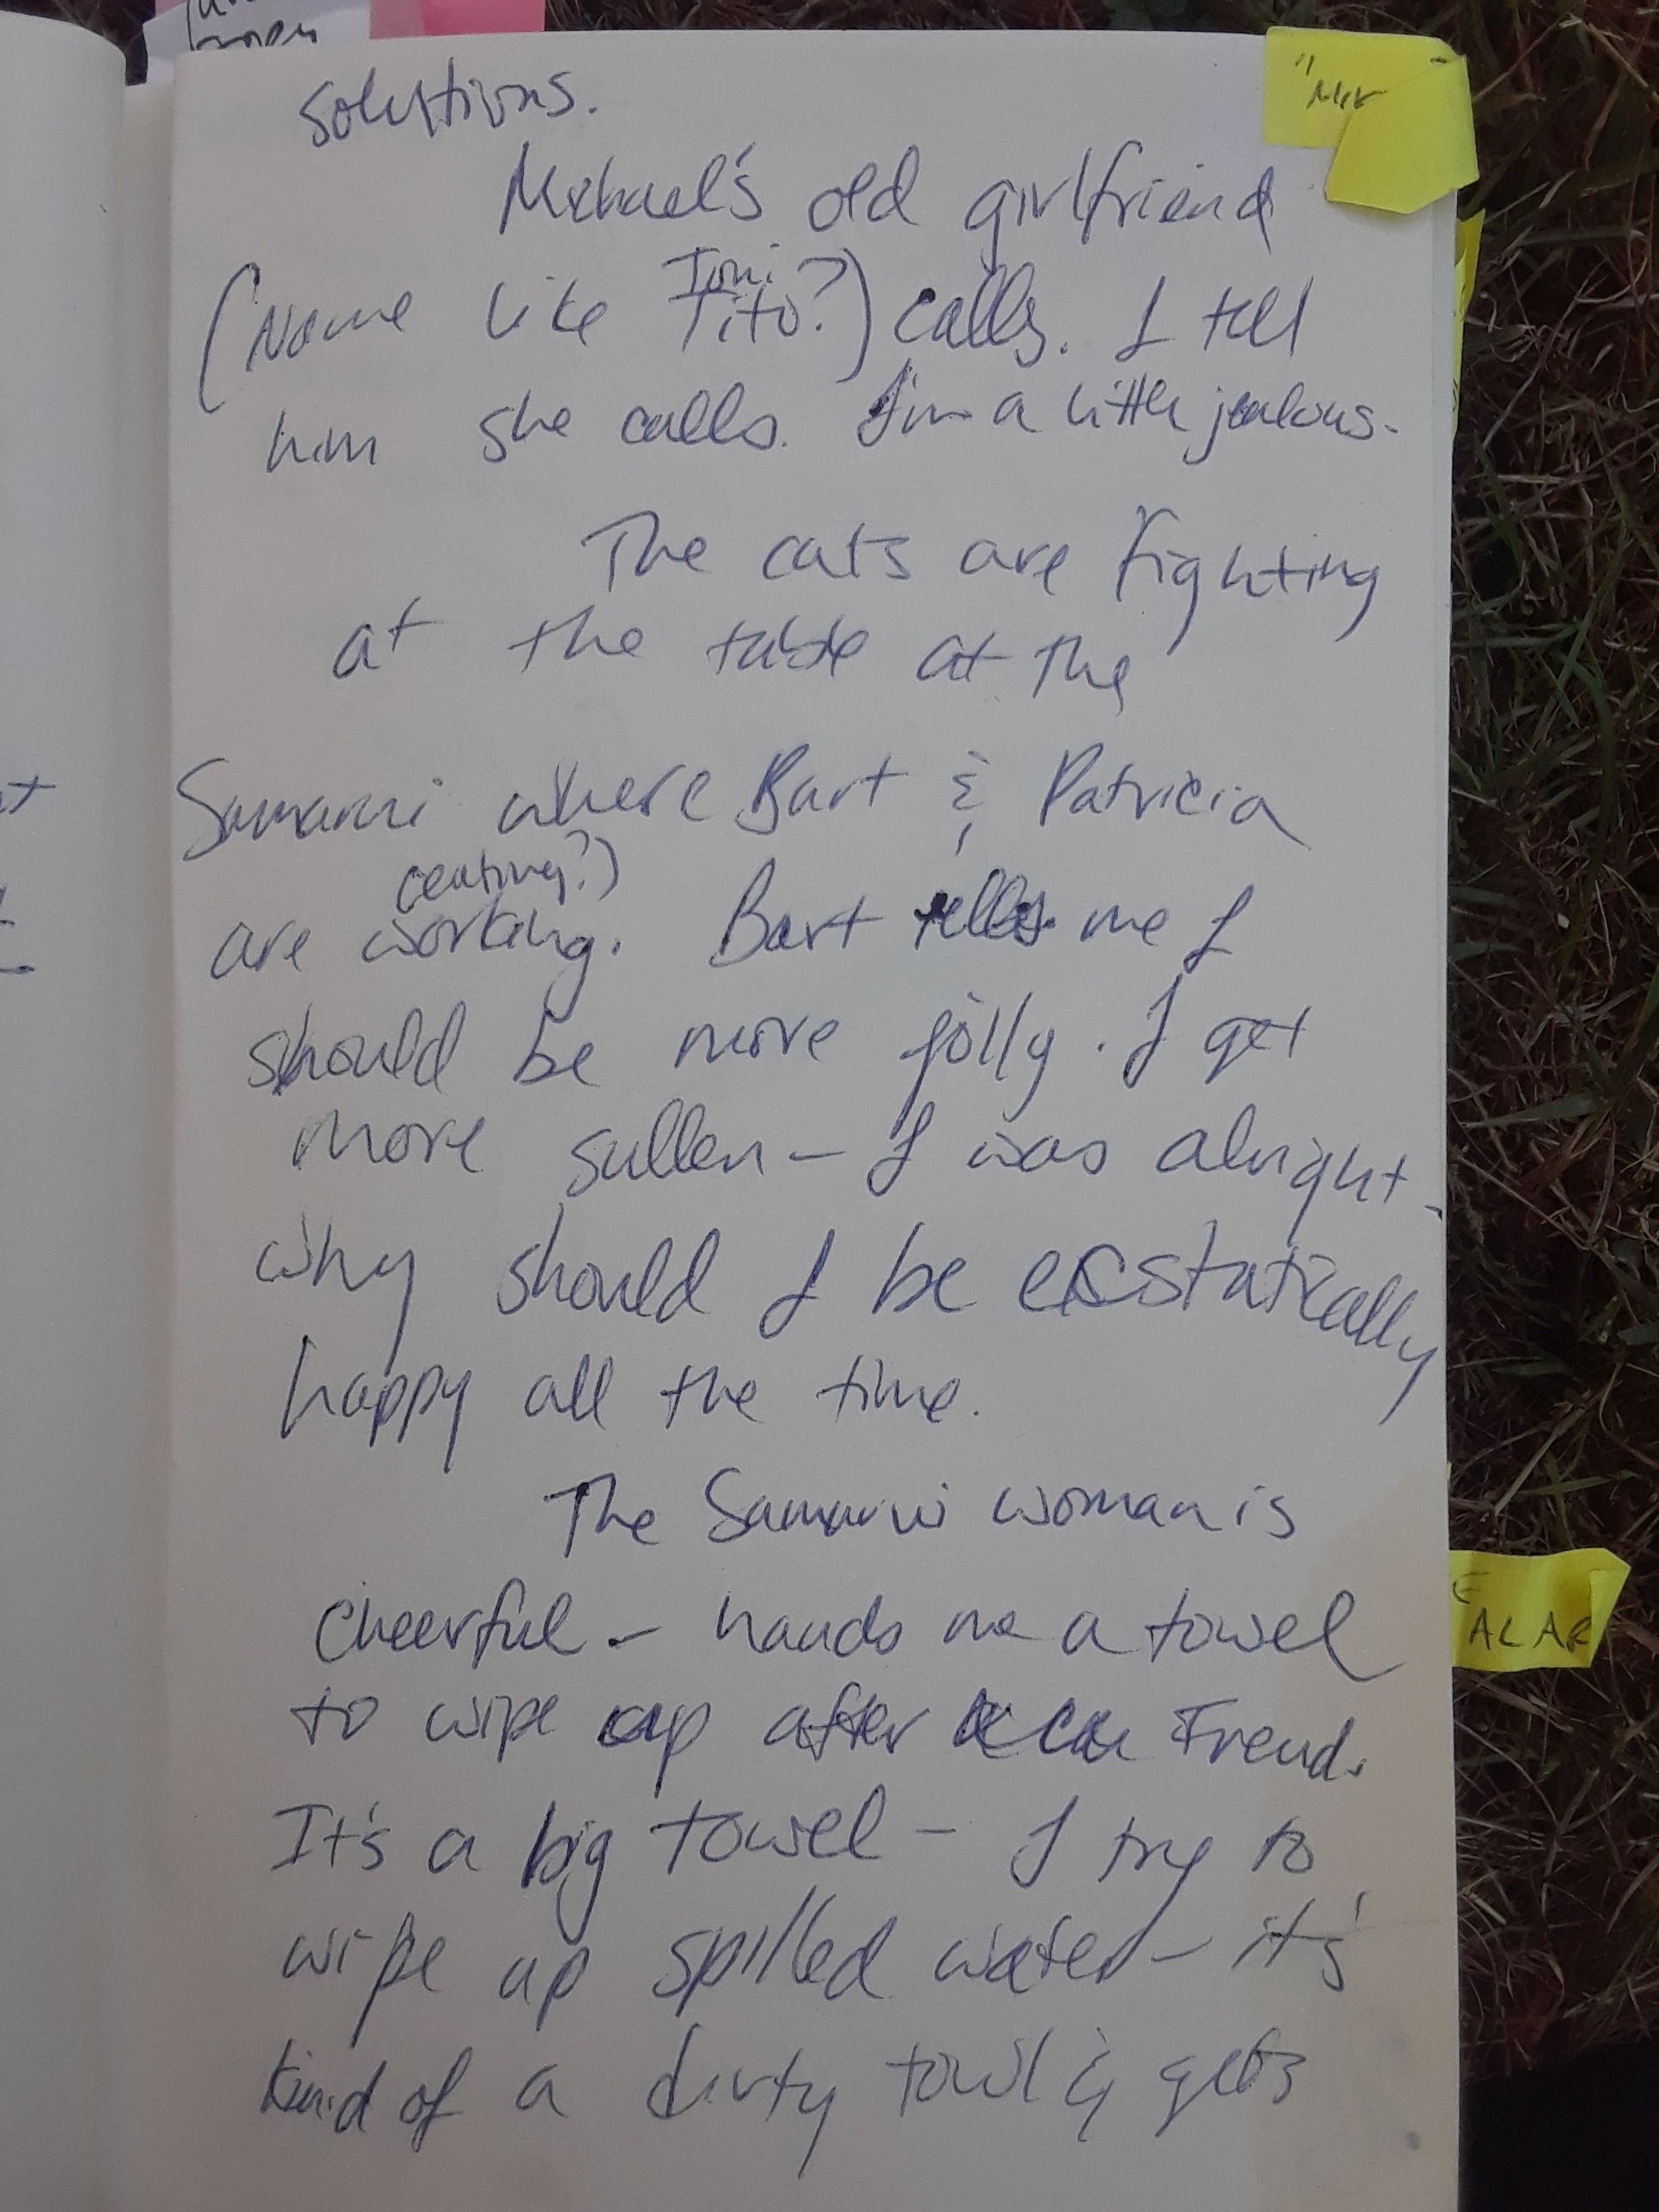 solutions.
Michael's old girlfriend
Toni
(Name like Tito?) calls. I tell
him she calls. I'm a little jealous.
The cats are fighting
at the table at the
Samurai where Bart & Patricia
(eating?)
are working. Bart tells me I
should be more jolly. I get
more sullen - I was alright.
why should I be ecstatically
happy all the time.
The Samurai woman is
cheerful - hands me a towel
to wipe up after Freud.
It's a big towel - I try to
wipe up spilled water - it's
kind of a dirty towel & gets
ALAR